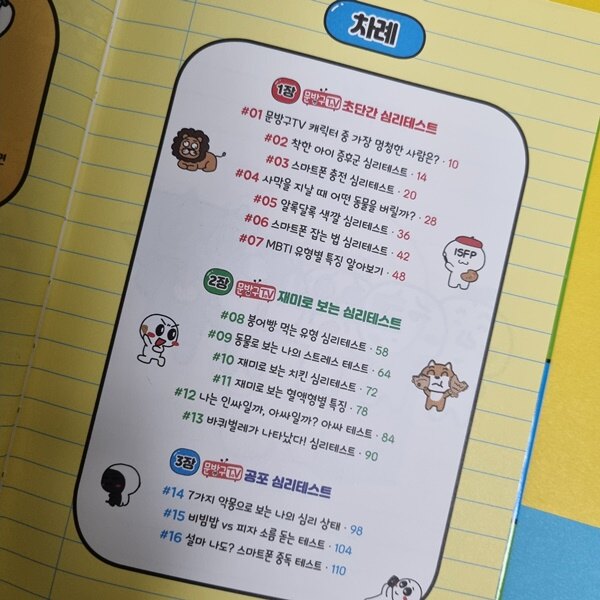 차례
1장 문방구TV 초단간 심리테스트
#01 문방구TV 캐릭터 중 가장 멍청한 사람은? · 10
#02 착한 아이 증후군 심리테스트 · 14
#03 스마트폰 충전 심리테스트 · 20
#04 사막을 지날 때 어떤 동물을 버릴까? · 28
#05 알록달록 색깔 심리테스트 · 36
#06 스마트폰 잡는 법 심리테스트 · 42
#07 MBTI 유형별 특징 알아보기 · 48
ISFP
2장 문방구TV 재미로 보는 심리테스트
#08 붕어빵 먹는 유형 심리테스트 · 58
#09 동물로 보는 나의 스트레스 테스트 · 64
#10 재미로 보는 치킨 심리테스트 · 72
#11 재미로 보는 혈액형별 특징 · 78
#12 나는 인싸일까, 아싸일까? 아싸 테스트 · 84
#13 바퀴벌레가 나타났다! 심리테스트 · 90
3장 문방구TV 공포 심리테스트
#14 7가지 악몽으로 보는 나의 심리 상태 · 98
#15 비빔밥 vs 피자 소름 돋는 테스트 · 104
#16 설마 나도? 스마트폰 중독 테스트 · 110